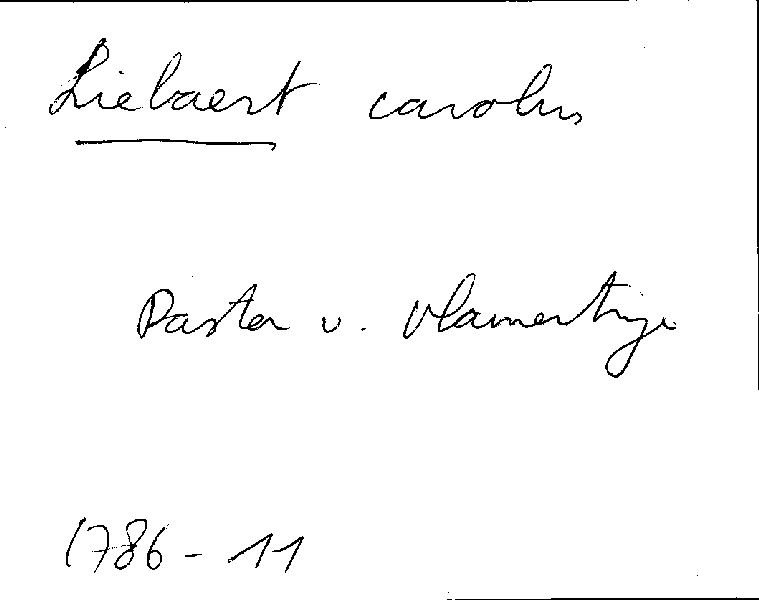 Liebaert carolus
Pastor v. Vlamertinge
1786 - 11